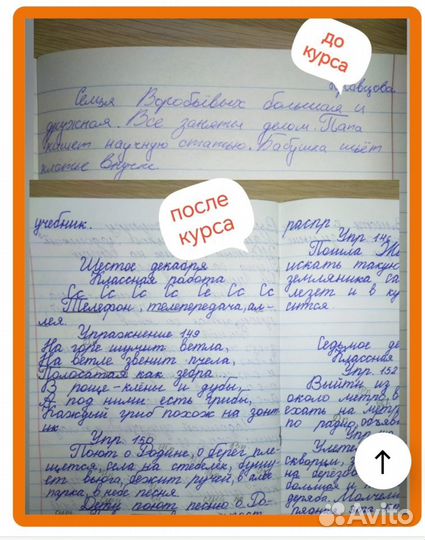 до
курса
Кравцова
Семья Воробьёвых большая и
дружная. Все заняты делом. Папа
пишет научную статью. Бабушка шьёт
платье внучке.
после
курса
учебник.
Шестое декабря
Классная работа
Сс Сс Сс Сс Сс Сс Сс Сс
Телефон, телепередача, ал-
лея
Упражнение 149
На горе шумит ветла,
На ветле звенит пчела,
Полосатая как зебра...
В роще-клёны и дубы,
А под ними есть грибы,
Каждый гриб похож на зонт
ик
Упр. 150
Поют о Родине, о берег пле-
щется, села на стебелёк, бушу-
ет вьюга, бежит ручей, в
в небе песня.
Дети поют песню о Ро-
распр
Упр 14
Пошла
искать
земляника
лезет и в ку
сится
Седьмое де
Классная
Упр. 152
Выйти из
около метро, в
ехать на метр
по радио, объяв
Упр
Улете
скворцы,
на берёзе
большая и
деревья. Молчали
Avito